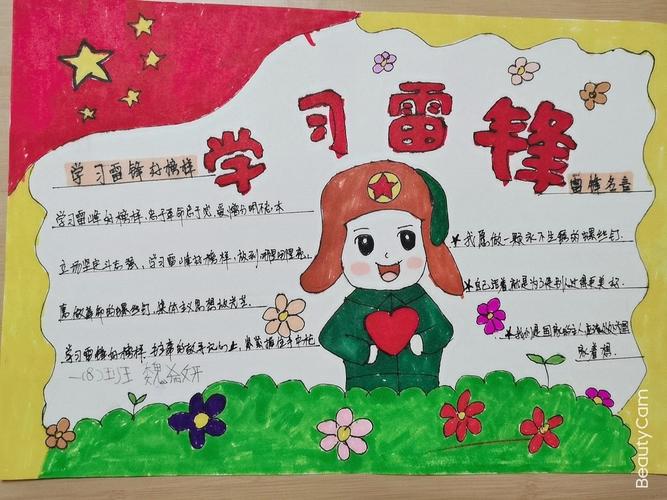 学习雷锋
学习雷锋好榜样
学习雷锋好榜样,忠于革命忠于党,爱憎分明不忘本
立场坚定斗志强,学习雷锋好榜样,放到哪里
愿做革命的螺丝钉,集体主义思想放光芒
学习雷锋好榜样,
一(8)班 魏
雷锋名言
★我愿做一颗永不生锈的螺丝钉.
★自己活着就是为了使别人过得更美好.
★我们是国家的主人,应该处处为国
家着想.
BeautyCam